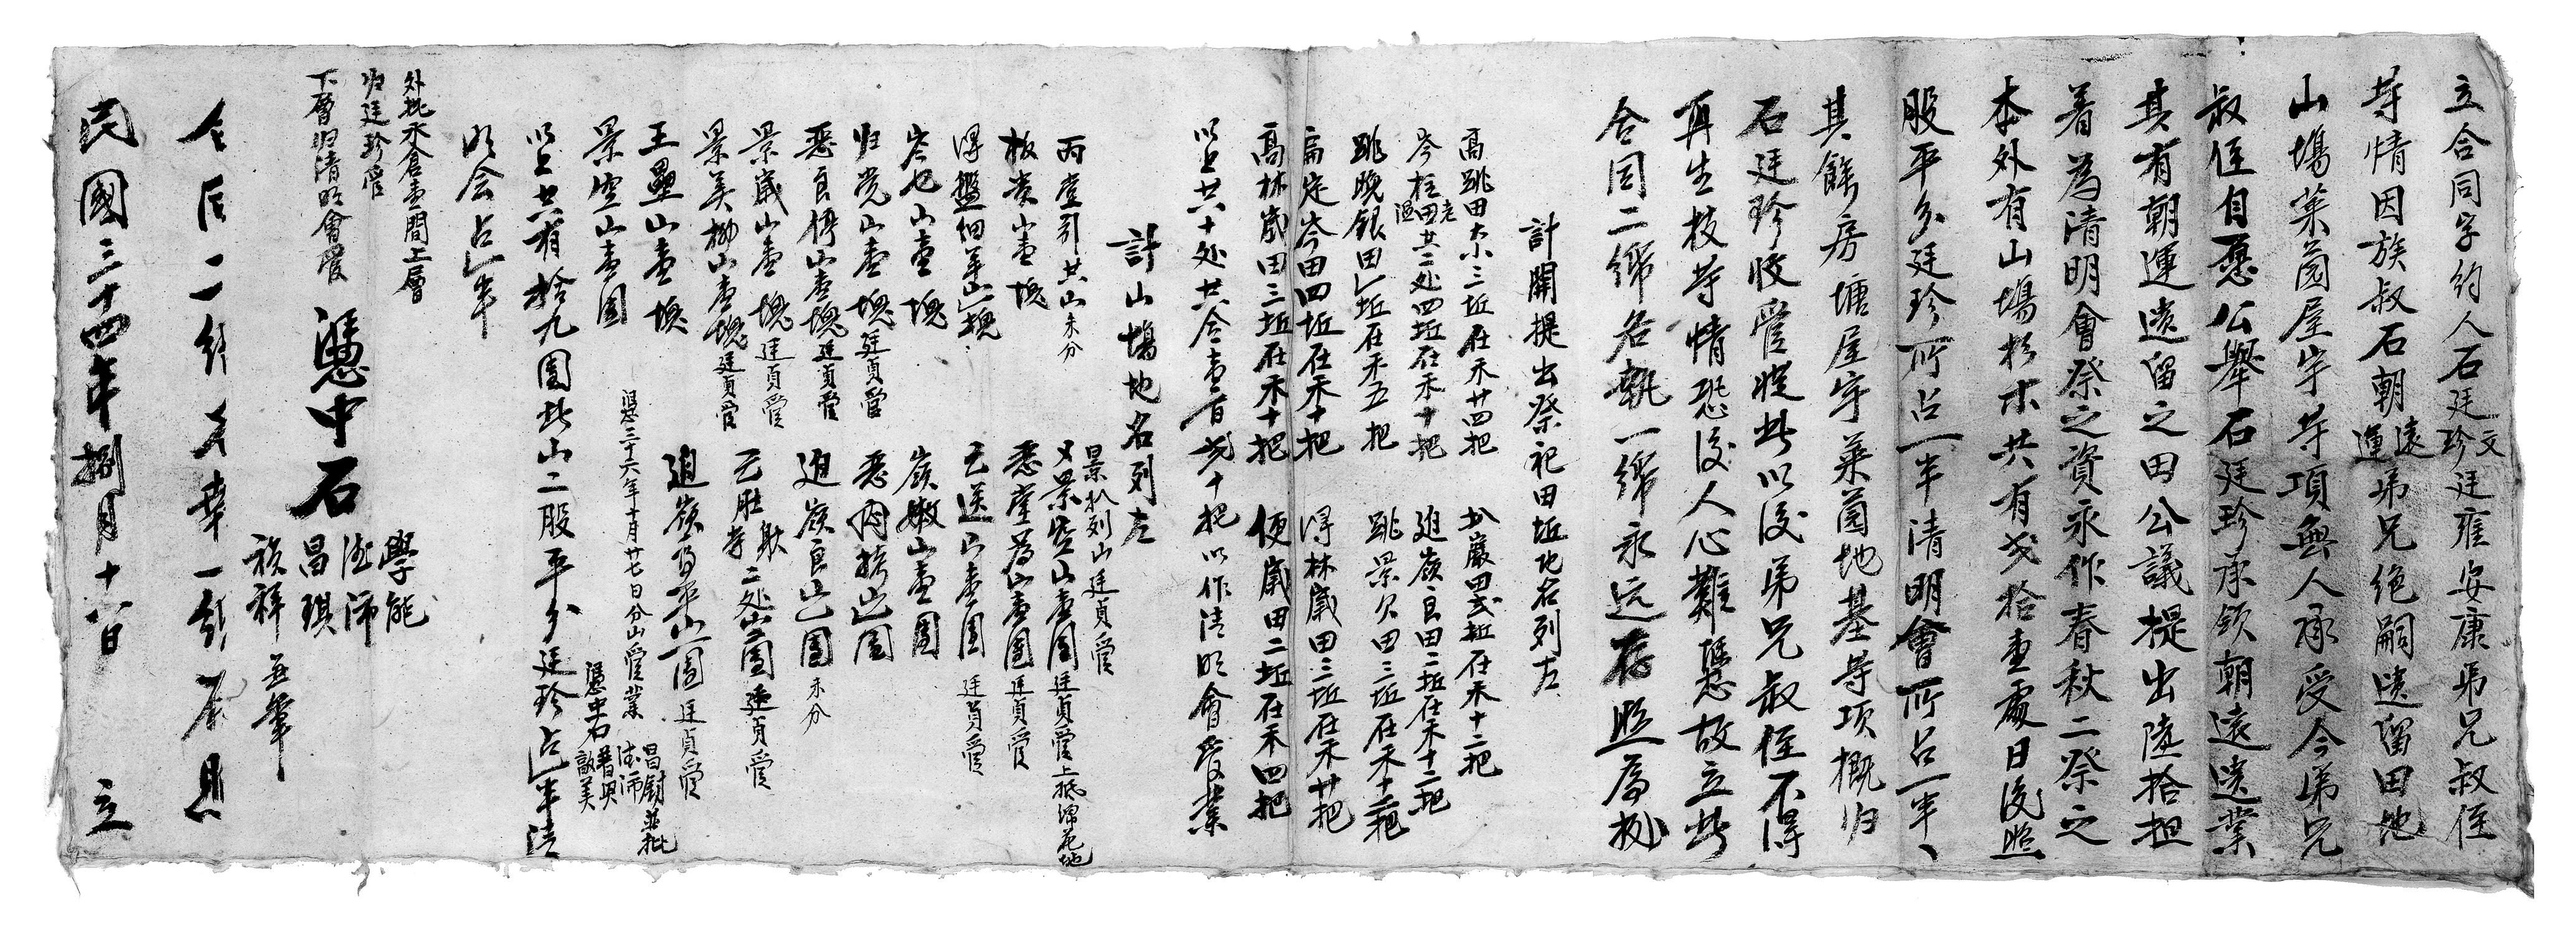 立合同字約人石廷文珍廷雍安康弟兄叔侄
等情因族叔石朝遠運弟兄絶嗣遺留田地
山塲菜園屋宇等項無人承受今弟兄
叔侄自愿公舉石廷珍承領朝遠遺業
其有朝運遺留之田公議提出陸拾担
着為清明會祭之資永作春秋二祭之
本外有山塲杉木共有弍拾壹處日後照
股平分廷珍所占一半清明會所占一半
其餘房塘屋宇菜園地基等項概归
石廷珍收管從此以後弟兄叔侄不得
再生枝等情恐後人心難憑故立此
合同二紙各執一紙永远存照為據
計開提出祭祀田坵地名列左
高跳田大小三坵在禾廿四把
岑柱田老温共二处四坵在禾十把
跳晚銀田乚坵在禾五把
扁定岑田四坵在禾十把
高林歲田三坵在禾十把
巖田弍坵在禾十二把
迫嶺良田二坵在禾十二把
跳景欠田三坵在禾十二把
得林歲田三坵在禾廿把
便歲田二坵在禾四把
以上共十处共合壹百弍十把以作清明會管業
計山塲地名列左
丙堂引共山未分
板贵山壹塊
得盤細羊山乚塊
岑乜山壹塊
归党山壹塊廷貞管
恶良得山壹塊廷貞管
景歲山壹塊廷貞管
景美柳山壹塊廷貞管
王壘山壹塊
景空山壹團
景扒列山廷貞管
又景岑山壹團廷貞管上抵棉花地
恶崖為山壹團廷貞管
云送山壹團廷貞管
嶺嫩山壹團
恶丙拷山乚團
迫嶺良山乚團未分
云肚耿寺二处山乚團廷貞管
迫嶺百平山一團廷貞管
憑三十六年十月廿七日分山管業
憑中石昌尉德沛普興啟美並批
以上共有拾九團此山二股平分廷珍占乚半清
明会占乚半
外批禾倉壹間上層
归廷珍管
下層归清明會管
憑中石學能德沛昌琪族祥亚筆
合同二紙各執一紙存照
民國三十四年捌月十六日立